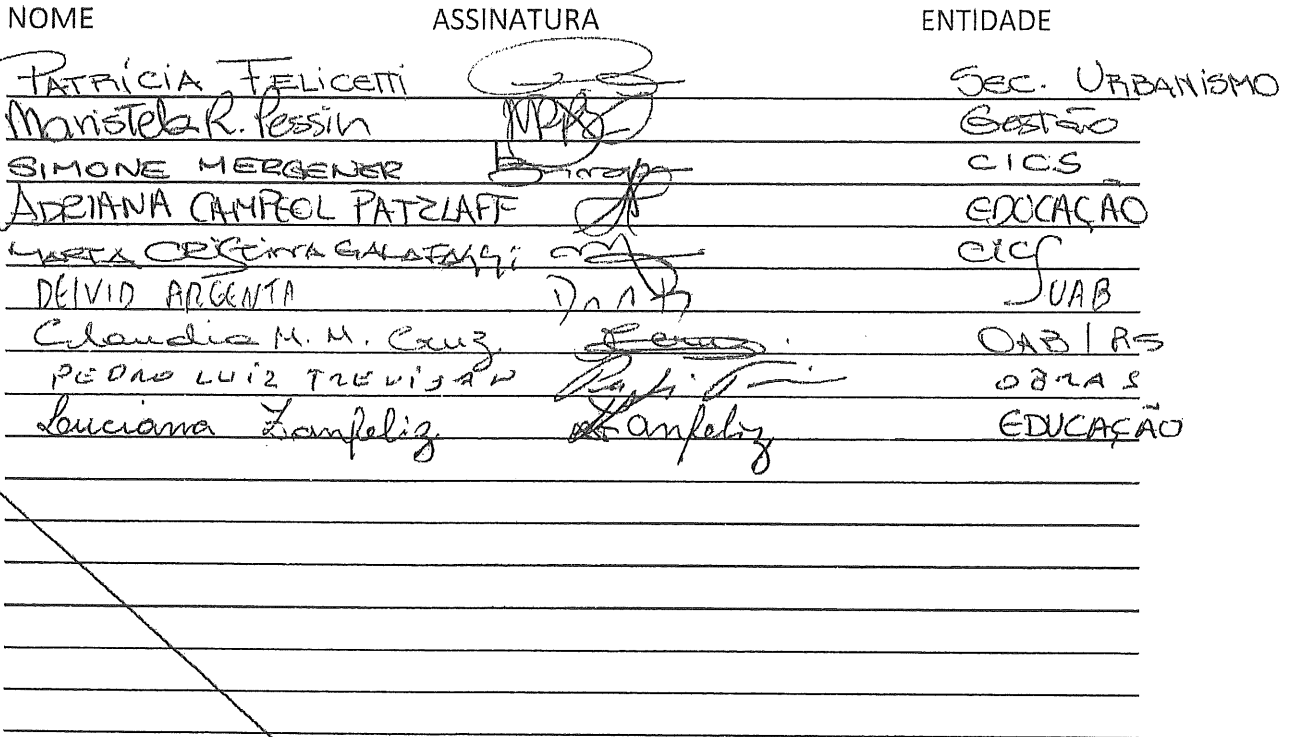 NOME ASSINATURA ENTIDADE
PATRÍCIA FELICETTI SEC. URBANISMO
Maristela R. Pessin Gestão
SIMONE MERGENER CICS
ADRIANA CAMPEOL PATZLAFF EDUCAÇÃO
CRISTINA
DEIVID ARGENTA UAB
Claudia M. M. Cruz OAB/RS
PEDRO LUIZ TREVISAN OBRAS
Luciana Zanfeliz Zanfeliz EDUCAÇÃO